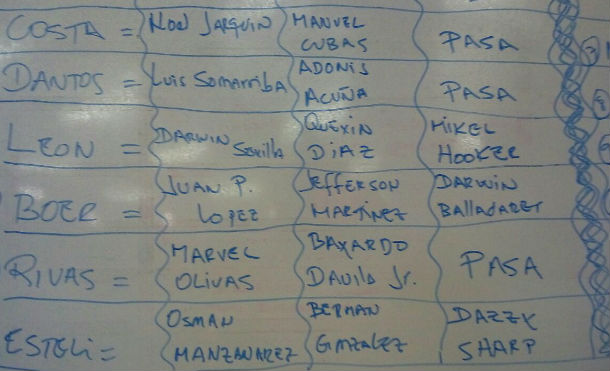 COSTA = Noel Jarquin MANUEL CUBAS PASA
DANTOS = Luis Somarriba ADONIS ACUÑA PASA
LEON = DARWIN Sevilla QUEXIN DiAZ MIKEL HOOKER
BOER = JUAN P. LOPEZ JEFFERSON MARTINEZ DARWIN BALLADARES
RIVAS = MARVEL OLIVAS BAYARDO Davila Jr. PASA
ESTELi = OSMAN MANZANAREZ BERMAN GONZALEZ DAZZY SHARP